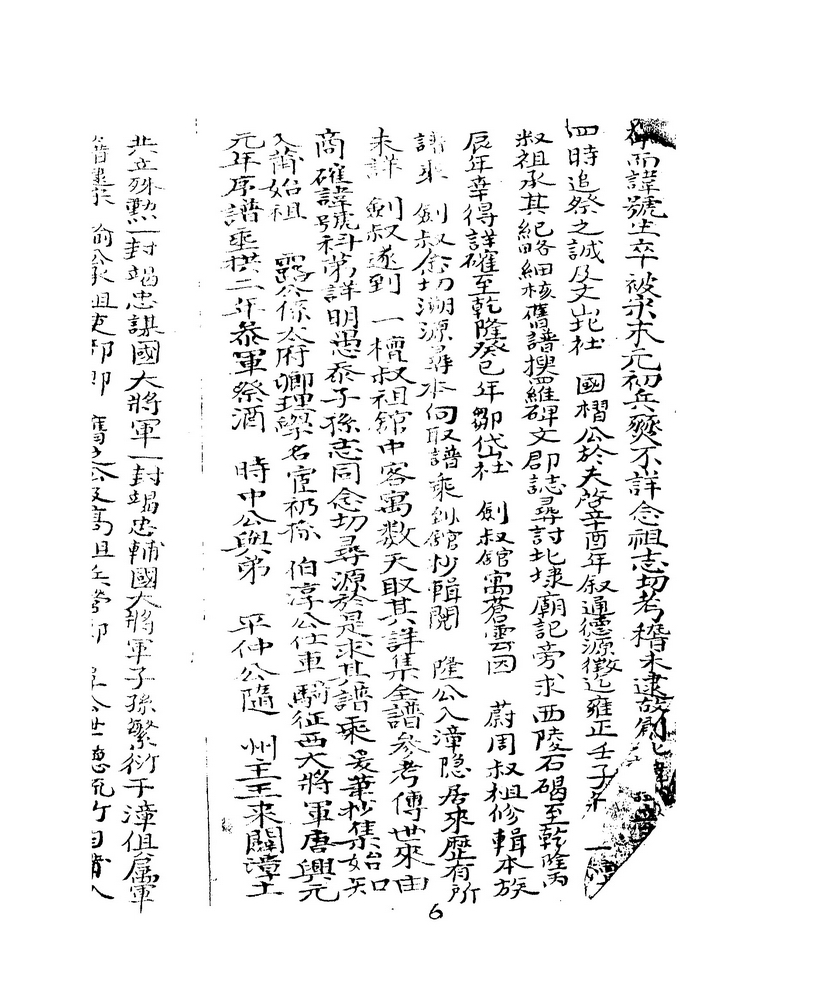 而諱號生卒被宋末元初兵燹不詳念祖志切考稽未逮故
四時追祭之誠及丈崑社 國榴公於天啓辛酉年叙通德源徵迄雍正壬子年 一
叔祖承其紀畧細核舊譜搜羅碑文郡誌尋討北埭廟記旁求西陵石碣至乾隆丙
辰年幸得詳確至乾隆癸巳年鄒岱社 劍叔館寓蒼雲因 蔚周叔祖修輯本族
譜來 劍叔念切溯源尋本向取譜乘到館抄輯閱 隆公入漳隐居來歷有所
未詳 劍叔遂到 一檀叔祖館中客寓数天取其詳集全譜參考傳世來由
商確諱號科第詳明愚忝子孫志同念切尋源於是求其譜乘爰筆抄集始
入莆始祖 露公係太府卿理學名宦礽孫 伯淳公仕車騎征西大將軍唐興元
元年序譜垂拱二年參軍祭酒 時中公與弟 平仲公隨 州主王來闢漳土
共立殊勲一封竭忠謀國大將軍一封竭忠輔國大將軍子孫繁衍于漳俱屬軍
籍 公承祖吏部郎 舊之公及高祖兵營 公世德流竹自莆入
6